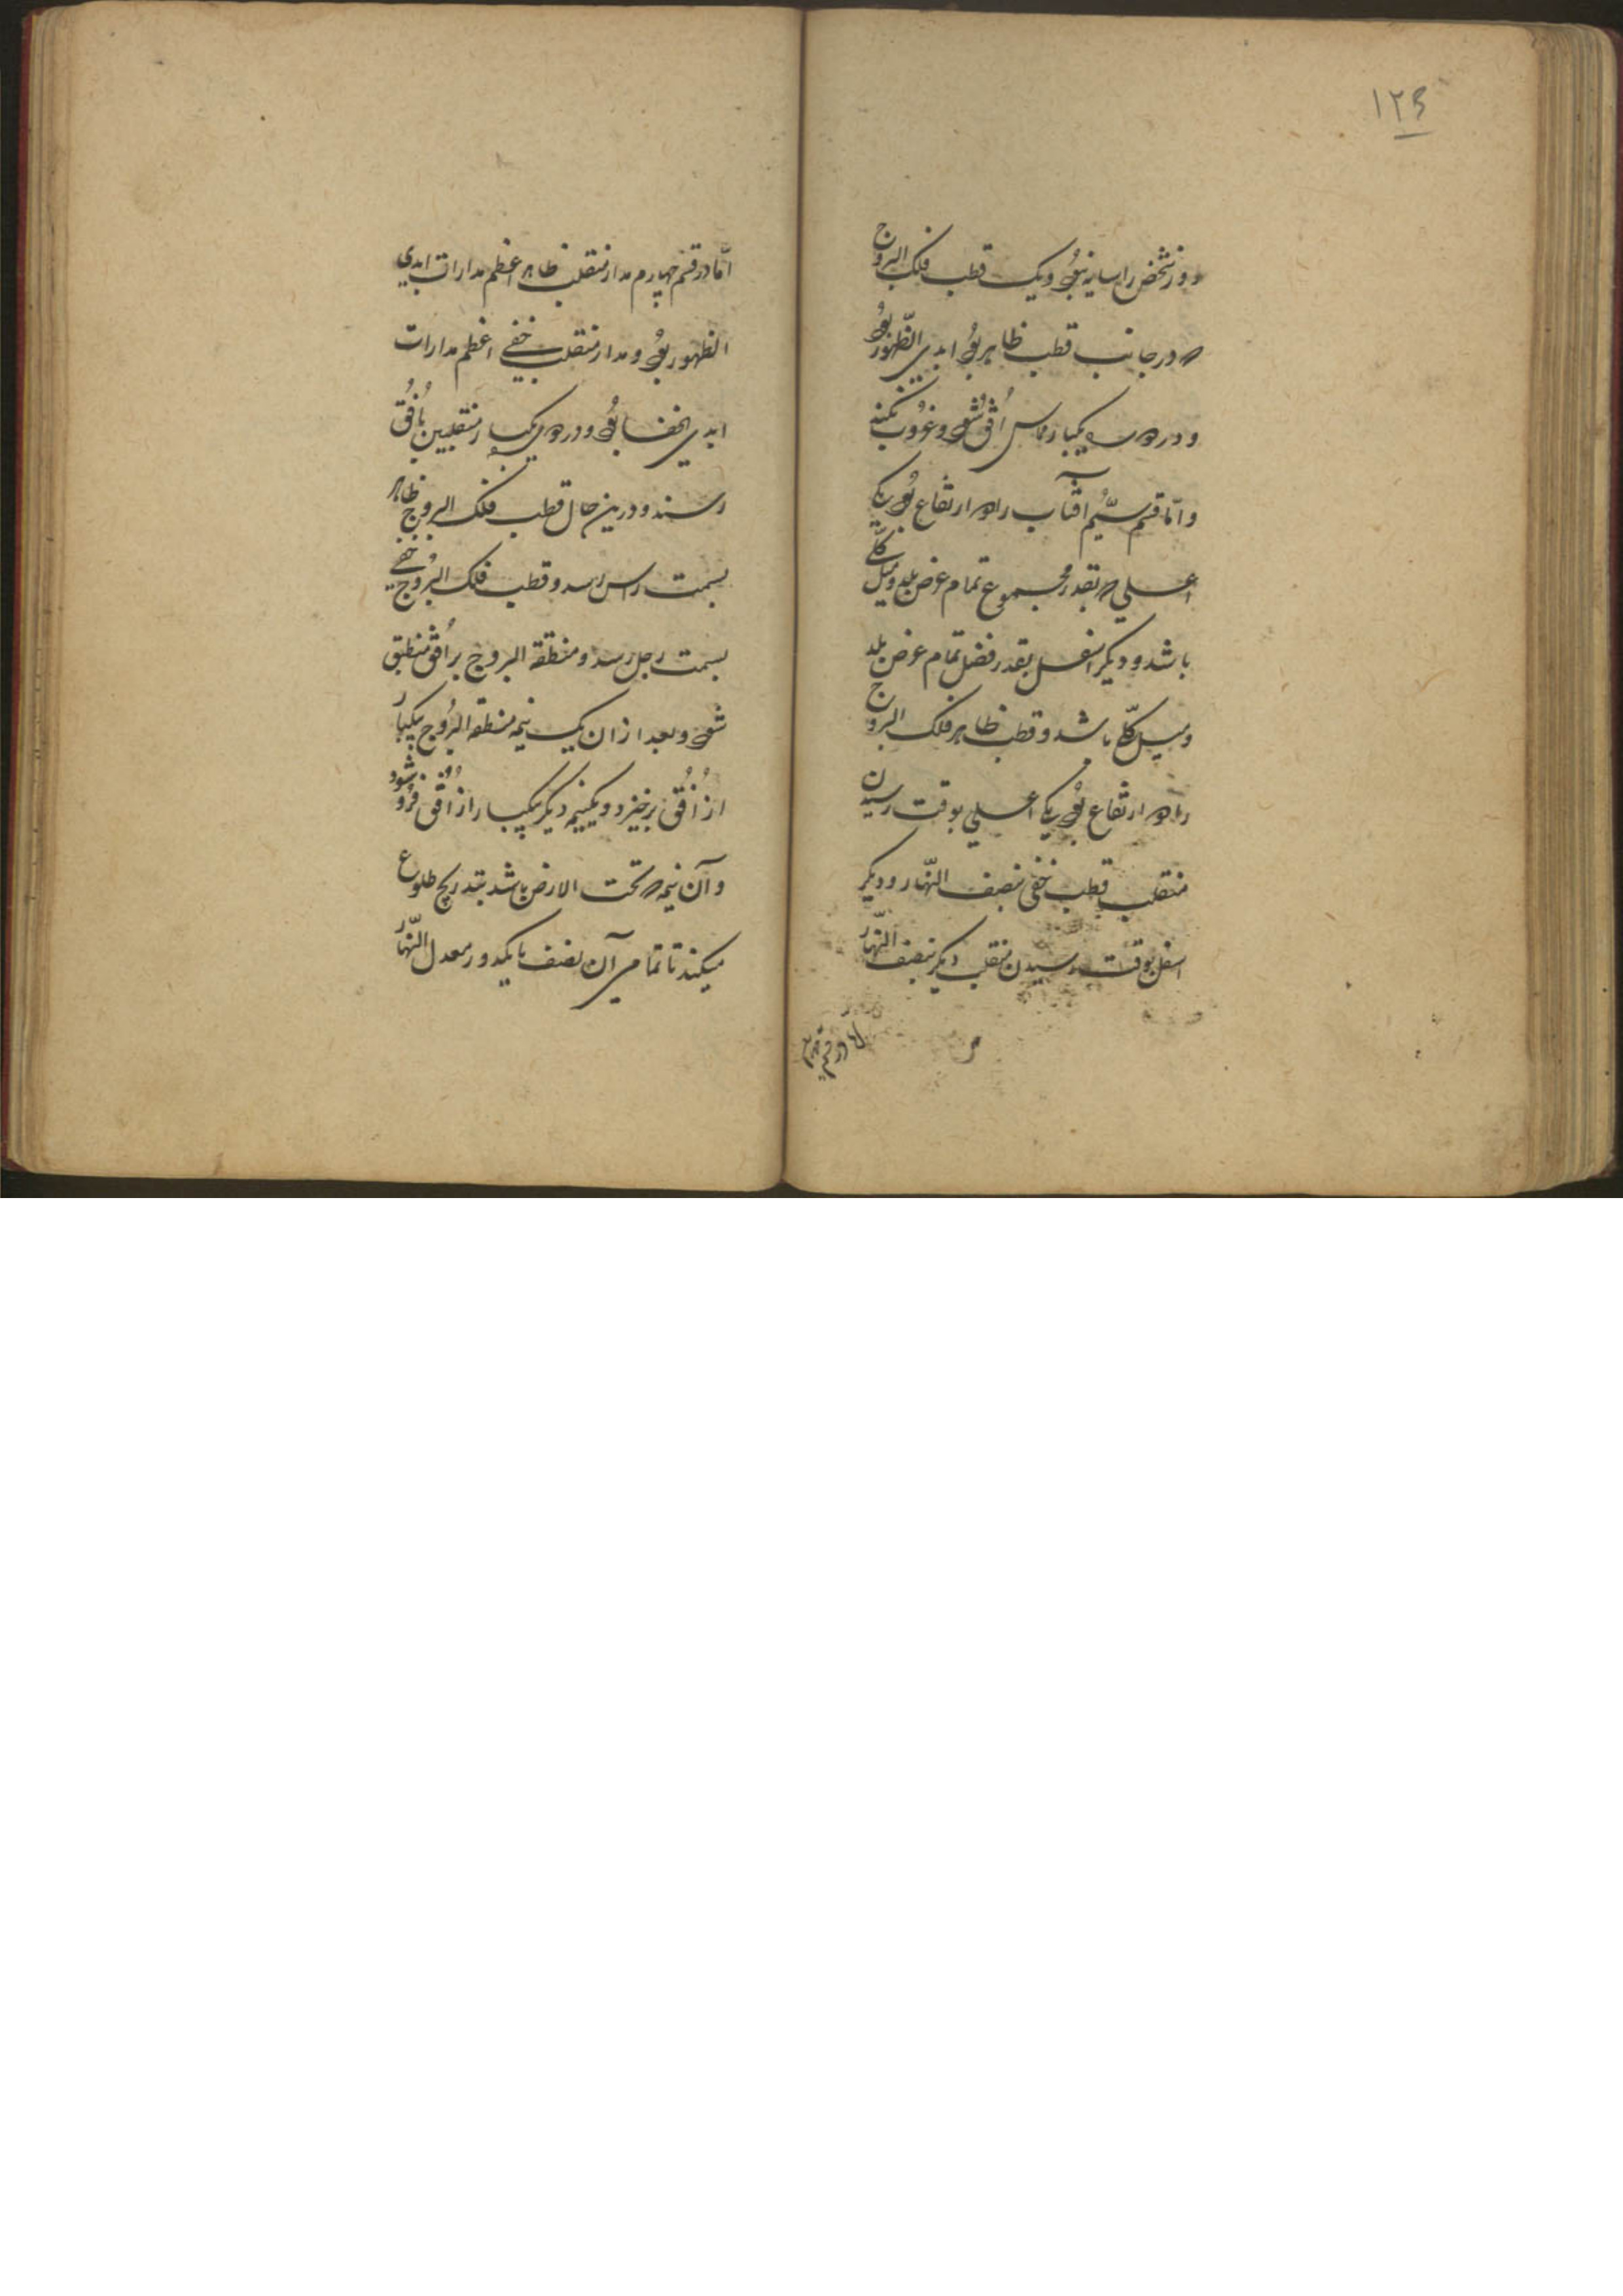 ۱۲۶
دو روز شخص را سایه نبود و یک قطب فلک البروج
که در جانب قطب ظاهر بود ابدی الظّهور بود
و در دوره یکبار مماس اُفق شود و غُروب نکند
و امّا قسم سیُّم آفتاب را دو ارتفاع بود یکی
اعلی که بقدر مجموع تمام عرض بلد و میل کلّی
باشد و دیگر اسفل بقدر فضل تمام عرض بلد
و میل کلّی باشد و قطب ظاهر فلک البروج
را دو ارتفاع بود یکی اعلی بوقت رسیدن
منقلب قطب خفی بنصف النّهار و دیگر
اسفل بوقت رسیدن منقلب دیگر بنصف النّهار
امّا در قسم چهارم
امّا در قسم چهارم مدار منقلب ظاهر اعظم مدارات ابدی
الظهور بود و مدار منقلب خفی اعظم مدارات
ابدی الخفا بود و در دوری یکبار منقلبین باُفُق
رسند و درین حال قطب فلک البروج ظاهر
بسمت راس رسد و قطب فلک البُروج خفی
بسمت رجل رسد و منطقة البروج بر اُفق منطبق
شود و بعد از ان یک نیمه منطقة البُروج بیکبار
از اُفُق برخیزد و یکنیمه دیگر بیکبار از اُفُق فرُو شود
و آن نیمه که تحت الارض باشد بتدریج طلوع
میکند تا تمامی آن نصف با یکدور معدل النّهار